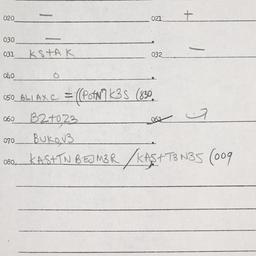 020 — 021 +
030 —
031 KS+AK 032 —
040 0
050 BLIAXC = ((PO+N7K3S (830
060 BZ+0,Z3 061
070 BUKOV3
080 KAS+TN BEJM3R / KAS+T3N3S (009